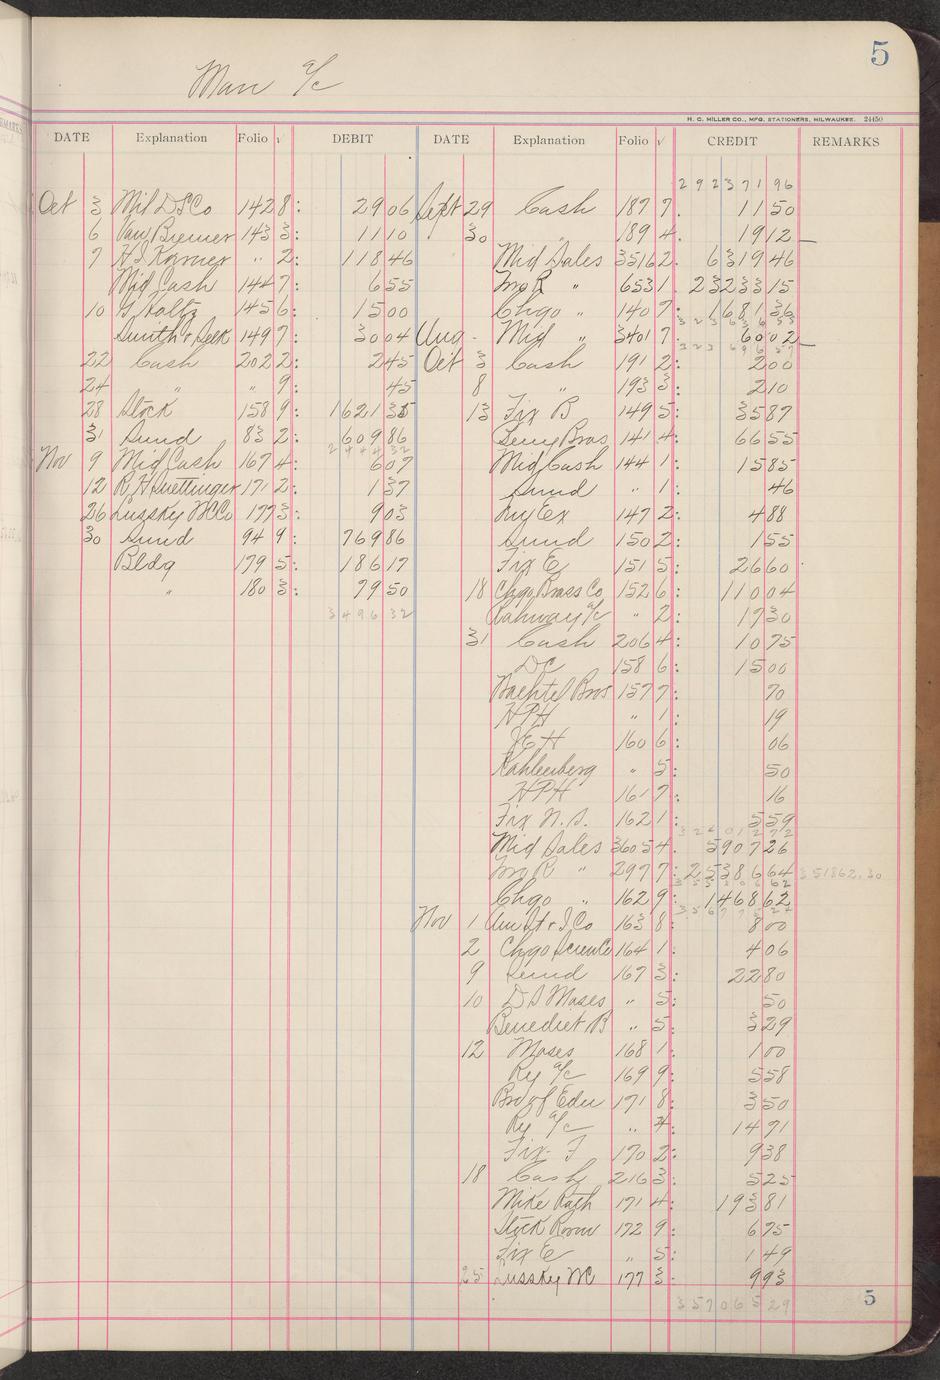 5
Man a/c
H. C. MILLER CO., MFG. STATIONERS, MILWAUKEE. 24450
DATE Explanation Folio √ DEBIT DATE Explanation Folio √ CREDIT REMARKS
292371 96
Oct 3 Mil D S Co 142 8: 29 06 Sept 29 Cash 187 7. 11 50
6 Van Biemer 143 3: 11 10 30 " 189 4. 19 12
7 H I Korner " 2: 118 46 Mid Sales 3516 2. 6319 46
Mid Cash 144 7: 6 55 Fro R " 653 1. 23233 15
10 G Kaltz 145 6: 15 00 Chgo " 140 7: 1681 36
Smith & Selk 149 7: 30 04 Aug - Mid " 3401 7. 60 02
22 Cash 202 2: 2 45 Oct 3 Cash 191 2: 2 00
24 " " 9: 45 8 " 193 3: 2 10
28 Stock 158 9: 1621 35 13 Fix B 149 5: 35 87
31 Sund 83 2: 609 86 Seng Bros 141 4: 66 55
Nov 9 Mid Cash 167 4: 6 07 Mid Cash 144 1: 15 85
12 R H Suettinger 171 2: 1 37 Sund " 1: 46
26 Lussky WCCo 177 3: 9 03 Ry Ex 147 2: 4 88
30 Sund 94 9: 769 86 Sund 150 2: 1 55
Bldg 179 5: 186 17 Fix E 151 5: 26 60
" 180 3: 79 50 18 Chgo Brass Co 152 6: 110 04
3496 32 Rahway a/c " 2: 19 30
31 Cash 206 4: 10 75
DC 158 6: 15 00
Bachtel Bros 157 7: 70
HPH " 1: 19
JEH 160 6: 06
Kahlenberg " 5: 50
HPH 161 7: 16
Fix N.S. 162 1: 5 59
Mid Sales 3605 4. 5907 26
Fro R " 297 7: 25386 64 351862.30
Chgo " 162 9: 1468 62
Nov 1 Am St & I Co 163 8: 8 00
2 Chgo Screw Co 164 1: 4 06
9 Sund 167 3: 22 80
10 D S Moses " 5: 50
Benedict B " 5: 3 29
12 Moses 168 1: 1 00
Ry a/c 169 9: 5 58
Brd of Edu 171 8: 3 50
Ry a/c " 4: 14 91
Fix F 170 2: 9 38
18 Cash 216 3: 5 25
Mike Rath 171 4: 193 81
Stock Room 172 9: 6 75
Fix E " 5: 1 49
25 Lussky WC 177 3: 9 93
357065 29
5